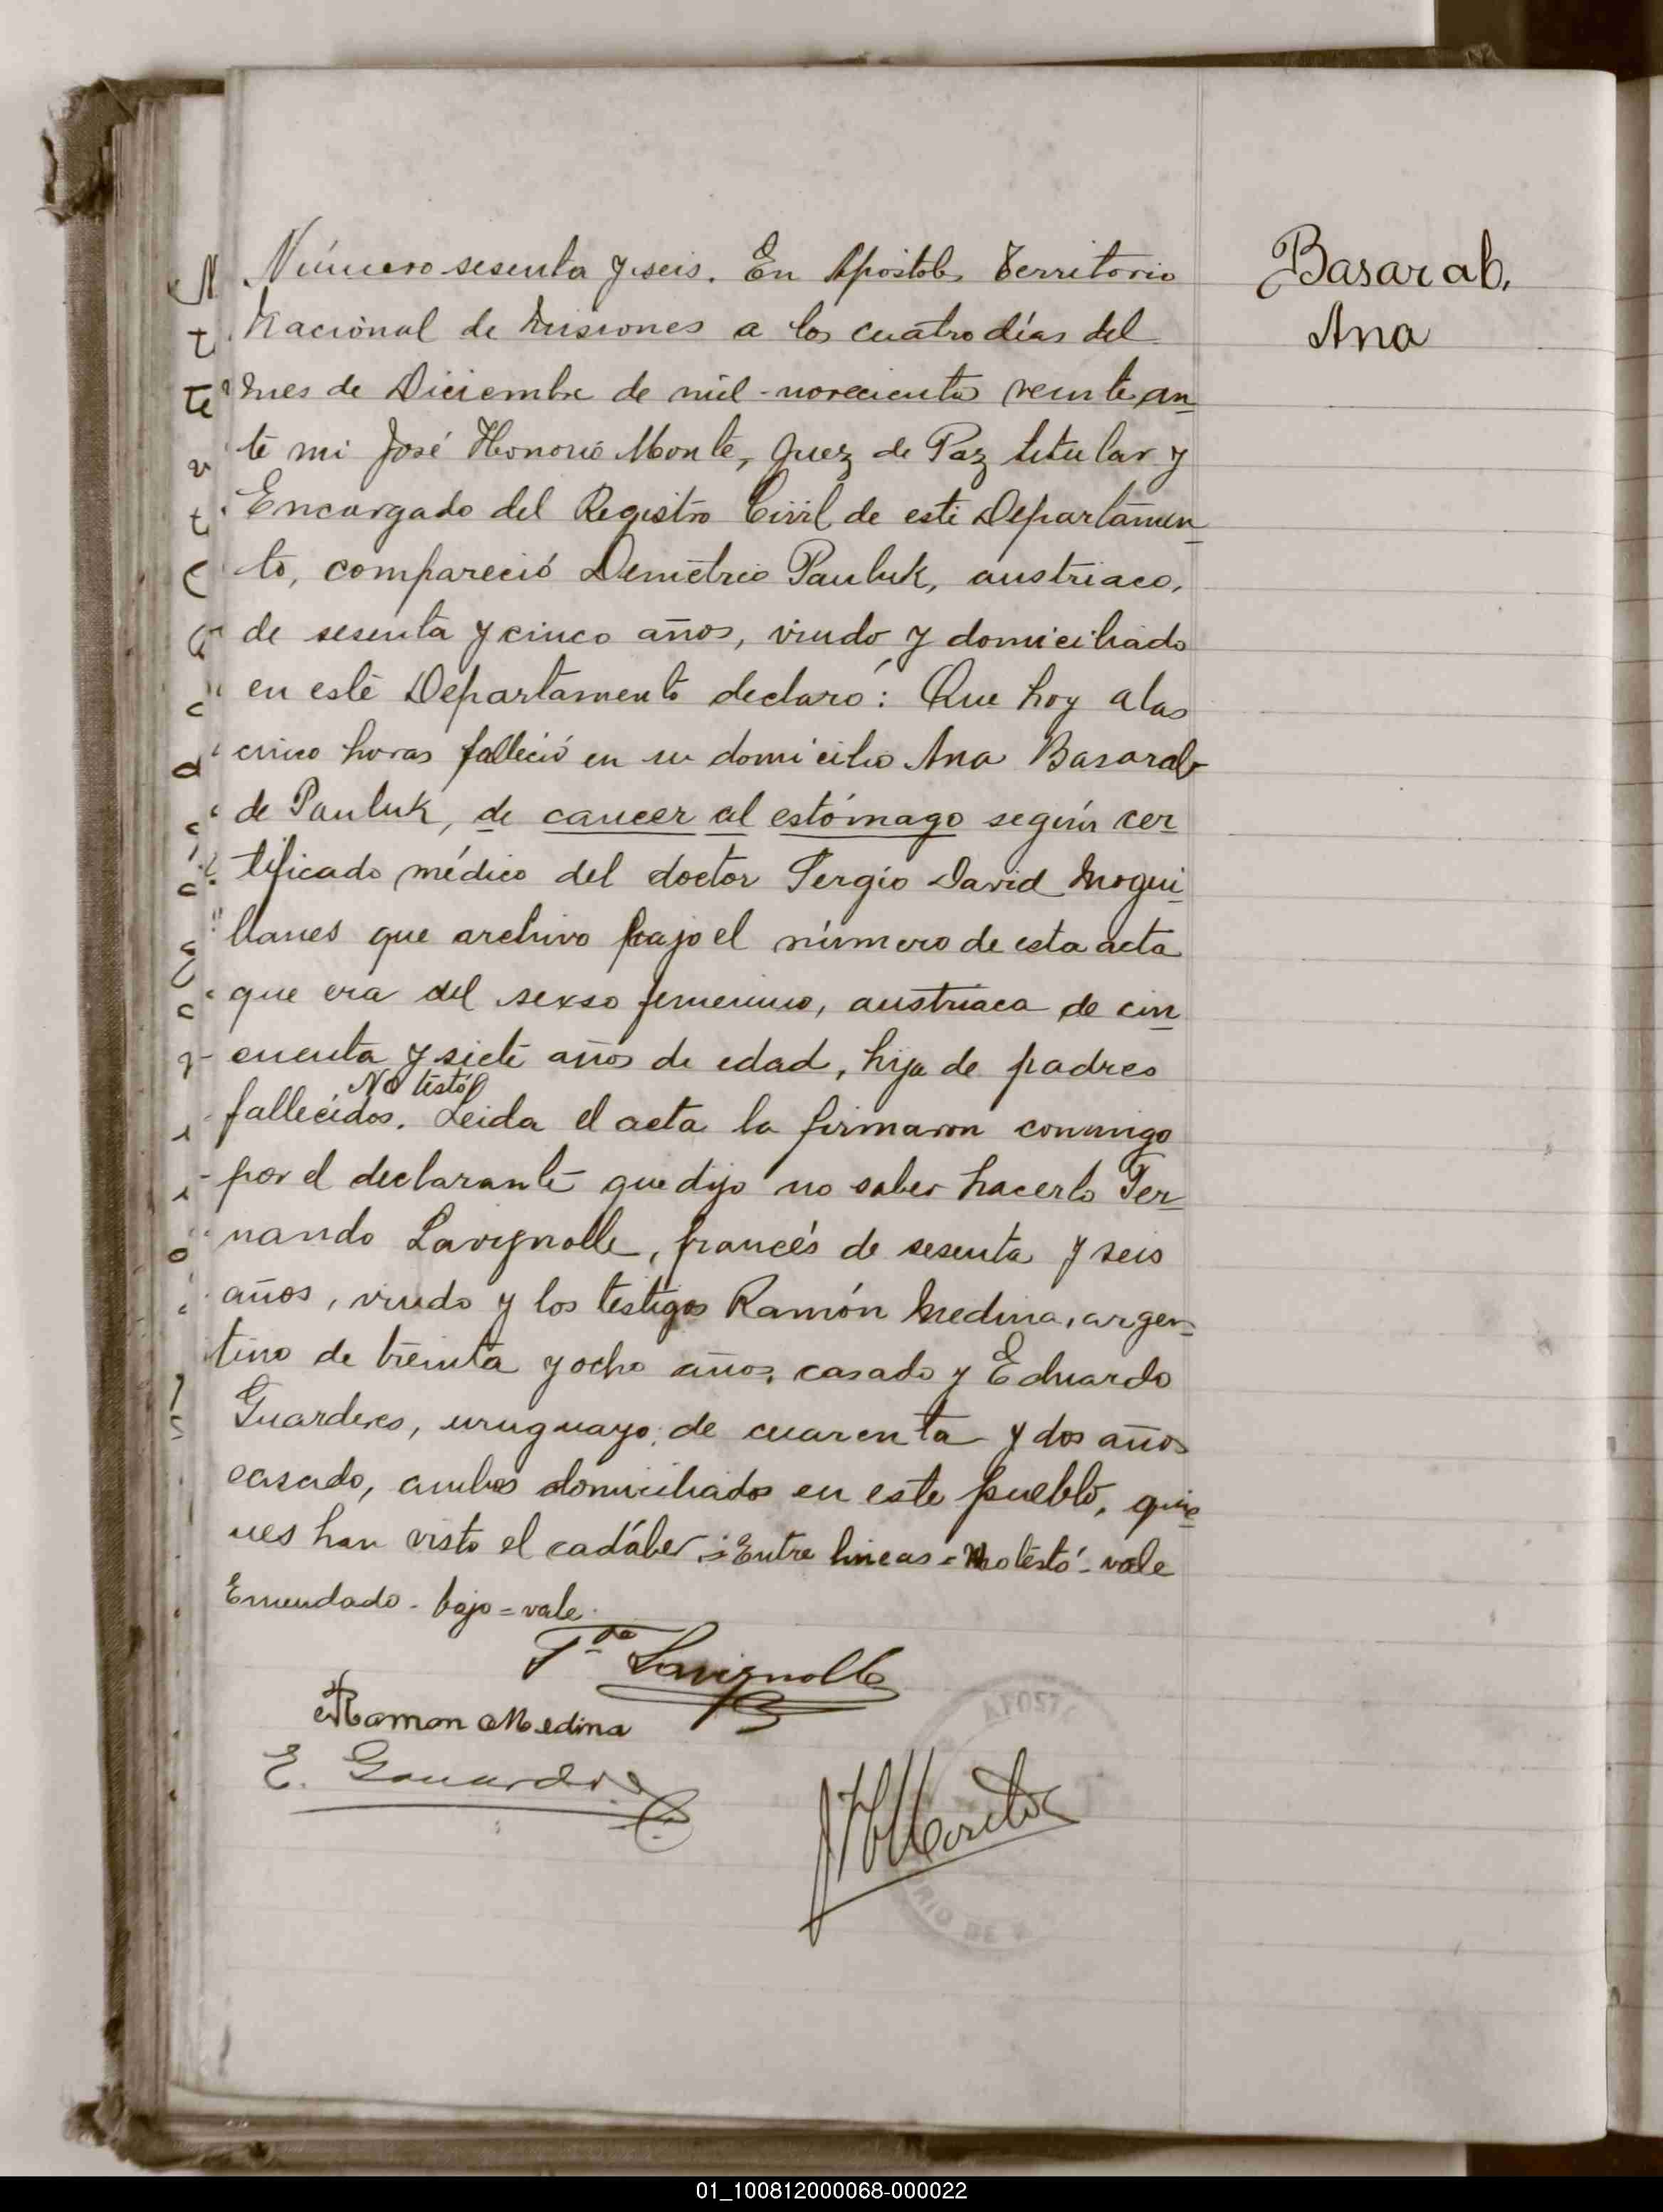 Número sesenta y seis. En Apostoles Territorio
Nacional de Misiones a los cuatro días del
mes de Diciembre de mil novecientos veinte an
te mi José Honorio Monte, Juez de Paz titular y
Encargado del Registro Civil de este Departamen
to, compareció Demetrio Pauluk, austriaco,
de sesenta y cinco años, viudo y domiciliado
en este Departamento declaró: Que hoy a las
cinco horas falleció en su domicilio Ana Basarab
de Pauluk, de cancer al estómago según cer
tificado médico del doctor Sergio David Mogui
llanes que archivo bajo el número de esta acta
que era del sexso femenino, austriaca de cin
cuenta y siete años de edad, hija de padres
No testó
fallecidos. Leida el acta la firmaron conmigo
por el declarante que dijo no saber hacerlo Fer
nando Lavignolle, francés de sesenta y seis
años, viudo y los testigos Ramón Medina, argen
tino de treinta y ocho años, casado y Eduardo
Guarderes, uruguayo, de cuarenta y dos años
casado, ambos domiciliados en este pueblo, quie
nes han visto el cadáber = Entre lineas = No testó - vale
Enmendado - bajo = vale.
F.do Lavignolle
Ramon Medina
E.
Basarab,
Ana
APOST
RIO DE
01_100812000068-000022